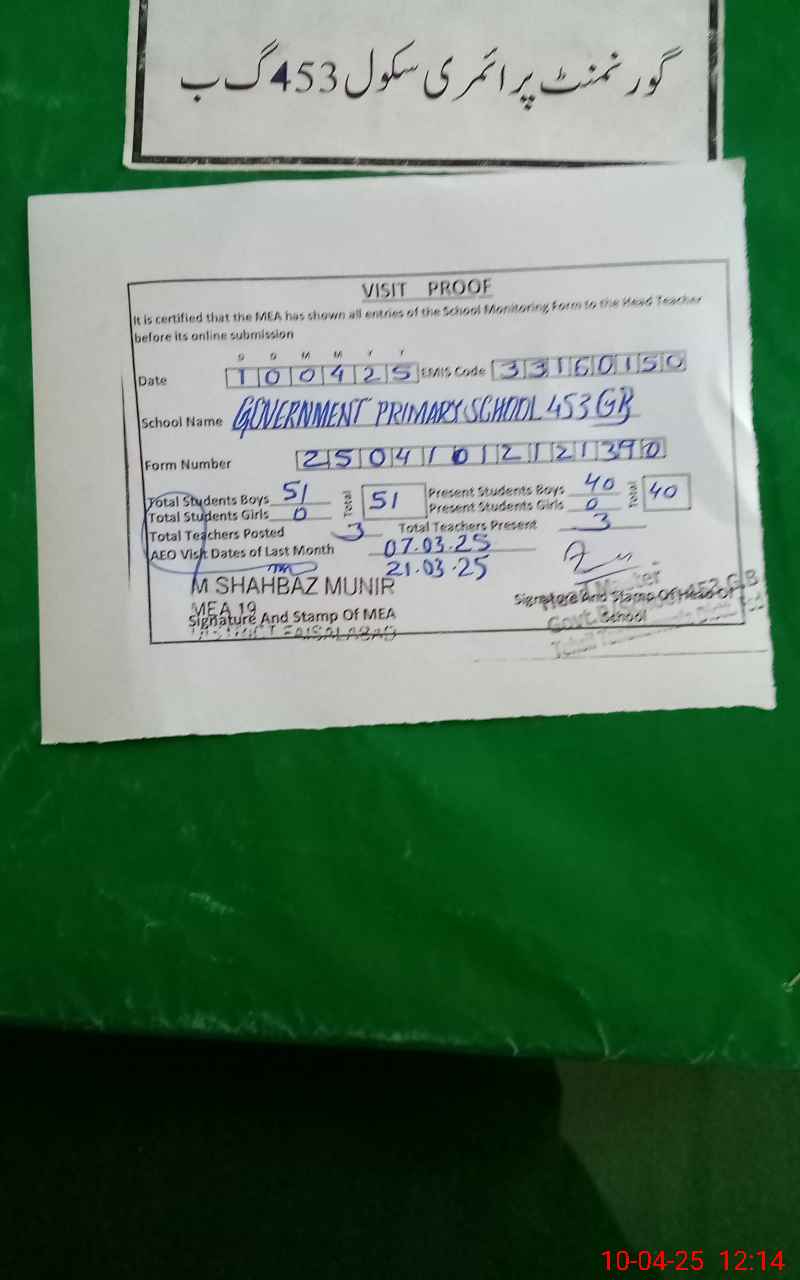 گورنمنٹ پرائمری سکول 453 گ ب
VISIT PROOF
It is certified that the MEA has shown all entries of the School Monitoring Form to the Head Teacher
before its online submission
D D M M Y Y
Date 1 0 0 4 2 5 EMIS Code 3 3 1 6 0 1 5 0
School Name GOVERNMENT PRIMARY SCHOOL 453 GB
Form Number 2 5 0 4 1 0 1 2 1 2 1 3 9 0
Total Students Boys 51 Total 51 Present Students Boys 40 Total 40
Total Students Girls 0 Present Students Girls 0
Total Teachers Posted 3 Total Teachers Present 3
AEO Visit Dates of Last Month 07.03.25
21.03.25
M SHAHBAZ MUNIR
MEA 19
Signature And Stamp Of MEA
DISTRICT FAISALABAD
Head Master
Signature And Stamp Of Head Of
School
453 G.B
10-04-25 12:14